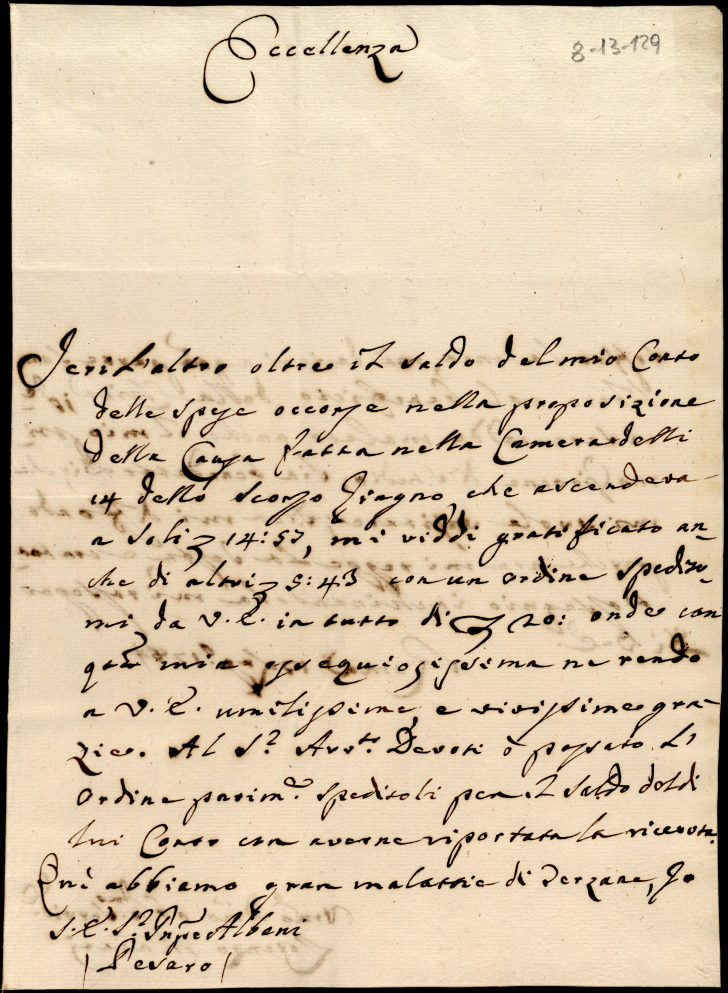 Eccellenza
8-13-129
Jeri l'altro oltre il saldo del mio Conto
delle spese occorse nella proposizione
della Causa fatta nella Camera delli
14 dello scorso Giugno che ascendeva
a soli 14:57, mi viddi gratificato an-
che di altri 5:43 con un ordine spedito-
mi da V.E. in tutto di 20: onde con
questa mia ossequiosissima ne rendo
a V.E. umilissime, e vivissime gra-
zie. Al S.r Avv.to Devoti ò passato l'
Ordine parim.e speditoli per il saldo del di
lui Conto con averne riportata la ricevuta.
Quì abbiamo gran malattie di Terzane, Io
S.E. S.r Pnpe Albani
Pesaro